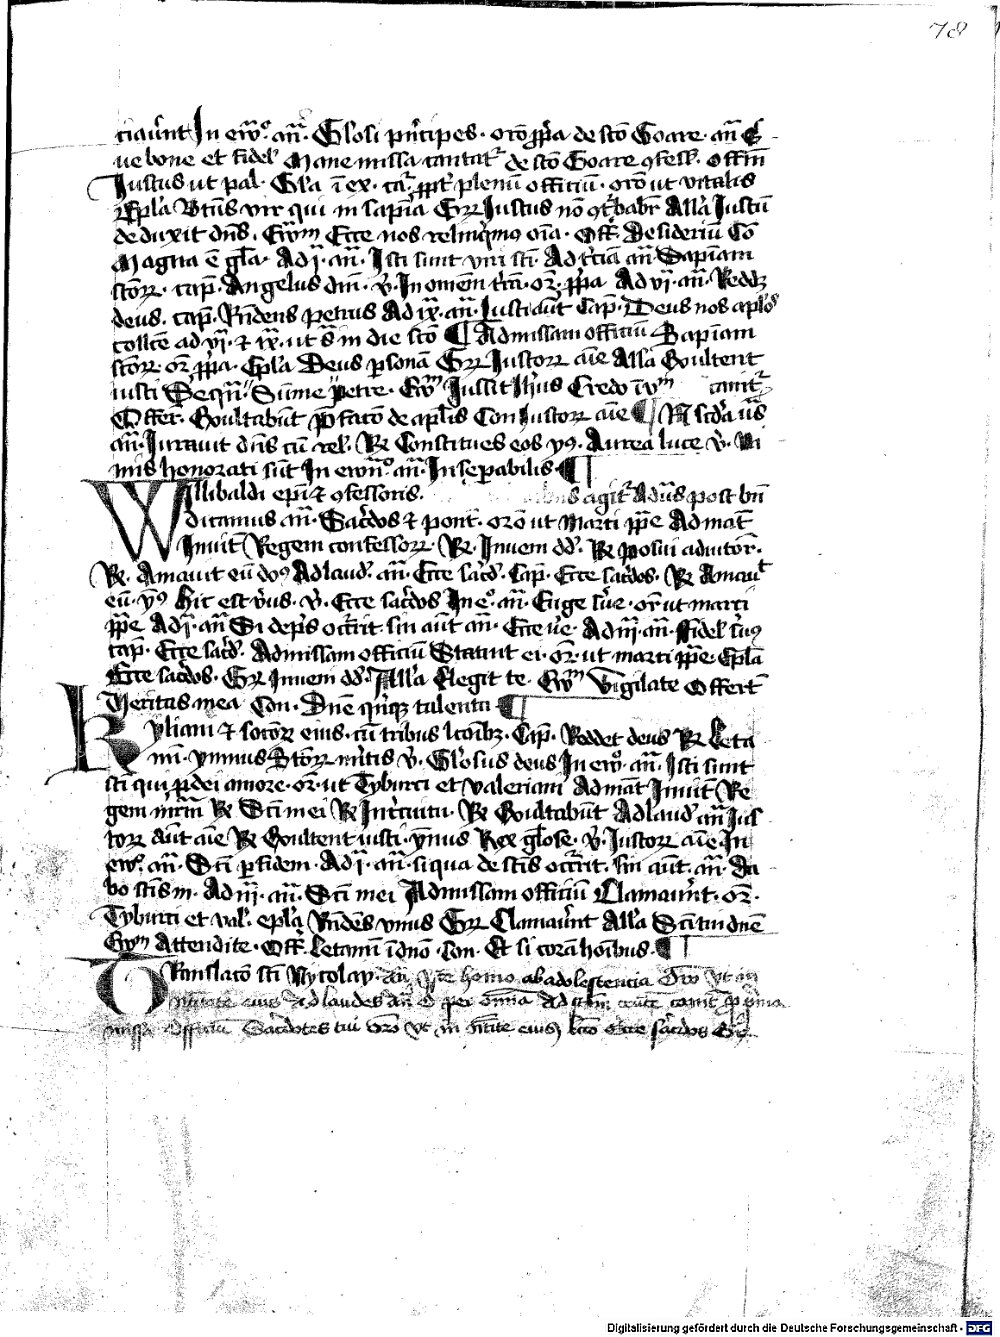 78
ciav̄nt In ew̄o. an̄. Gl'osi pn̄cipes. orō ꝓp̄a de sc̄o Goare. an̄ E
ue bone et fidel' Mane missa cantat' de sc̄o Goare ꝯfess'. Offm̄
Iustus ut pal. Gl'a ī ex. plenū officiū. orō ut vitalis
Ep̄la Btūs vir qui in sap̄ia Gr̄ Iustus nō ꝯt'bab' All'a Iustū
deduxit dn̄s. Ew̄m Ecce nos relinq̄mꝰ oīa. Off. Desideriū Cō
Magna ē gl'a. Ad j. an̄. Isti sunt viri sc̄i. Ad t'ciā an̄ Sapiam
sc̄oꝝ. cap. Angelus dn̄i. v̄. In omēm t'rā. or̄. ꝓp̄a Ad vj. an̄. Reddꝫ
deus. cap. Rn̄dens petrus Ad ix. an̄. Iusti aūt Cap. Deus nos ap'lo
collcē ad vj. ⁊ ix. ut s̄ in die sc̄o ¶ Ad missam officiū Sapiam
sc̄oꝝ. or̄ ꝓp̄a. Ep̄la Deus ꝑsonā Gr̄ Iustoꝝ aīe All'a Exultent
iusti Seqn̄. Sūme petre. Ew̄m Iussit Ih'us Credo cantr̄
Offer. Exultabūt P̄facō de apl'is Con Iustoꝝ aīe ¶ s̄cda us̄
an̄. Iurauit dn̄s cū rel'. R̄ Constitues eos yꝰ. Aurea luce v̄. Ni
mis honorati sūt In ewn̄o. an̄. Inseꝑabilis. ¶
Willibaldi epi ⁊ ꝯfessoris. agit' Ad us̄ post bn̄
dicamus an̄. Sac'dos ⁊ pont'. orō ut Marti ꝓpe Ad mat'
Inuit' Regem confessoꝝ. R̄. Inueni dd'. R̄ Posui adiutor'.
R̄. Amauit eū doꝰ Ad laud'. an̄. Ecce sac'd'. Cap. Ecce sac'dos. R̄ Amauit
eū. yꝰ Hic est v̄us. v̄. Ecce sac'dos In eo. an̄. Euge s'ue. or̄ ut marti
ꝓpe Ad j. an̄ Si dep's occ'rit sin aūt an̄. Ecce v̄e. Ad iij. an̄. Fidel' s'uꝰ
cap. Ecce sac'd'. Ad missam officiū Statuit ei. or̄. ut marti ꝓpe. Ep̄la
Ecce sac'dos. Gr̄ Inueni dd'. All'a Elegit te. Ew̄m Vigilate Offert'
Veritas mea Con. Dn̄e qn̄qꝫ talenta ¶
Kyliani ⁊ socōꝝ eius. cū tribus lcōibꝫ. Cap. Reddet deus R̄ Leta
mī. ymnus Sc̄oꝝ m'itis v̄. Gl'osus deus In ew̄o. an̄. Isti sunt
sc̄i qui ꝑ dei amore. or̄. ut Tyburci et valeriani Ad mat' Inuit' Re
gem mr̄m R̄ Sc̄i mei R̄ In c'cuitu. R̄ Exultabūt Ad laud' an̄ Jus
toꝝ aūt aīe R̄ Exultent iusti. ymnus Rex gl'ose. v̄. Iustoꝝ aīe In
ew̄o. an̄. Sc̄i ꝑ fidem. Ad j. an̄. siqua de sc̄is occ'rit. sin aūt. an̄. Da
bo sc̄is m. Ad iij. an̄. Sc̄i mei Ad missam officiū Clamauer̄t. or̄.
Tyburci et val'. ep̄la Rn̄dēs vnus Gr̄ Clamauer̄t All'a Sc̄i tui dn̄e
Ew̄m Attendite. Off. Letamī ī dn̄o. Con. Et si corā hoībus. ¶
Translacō sc̄i Nycolay. an̄ homo ab adolescencia Orō Vt in
eius Ad laudes an̄ O ꝑ oīnia cant'
missa Officiū Sac'dotes tui Orō Vt in eius lcō Ecce sac'dos Gr̄
Digitalisierung gefördert durch die Deutsche Forschungsgemeinschaft - DFG